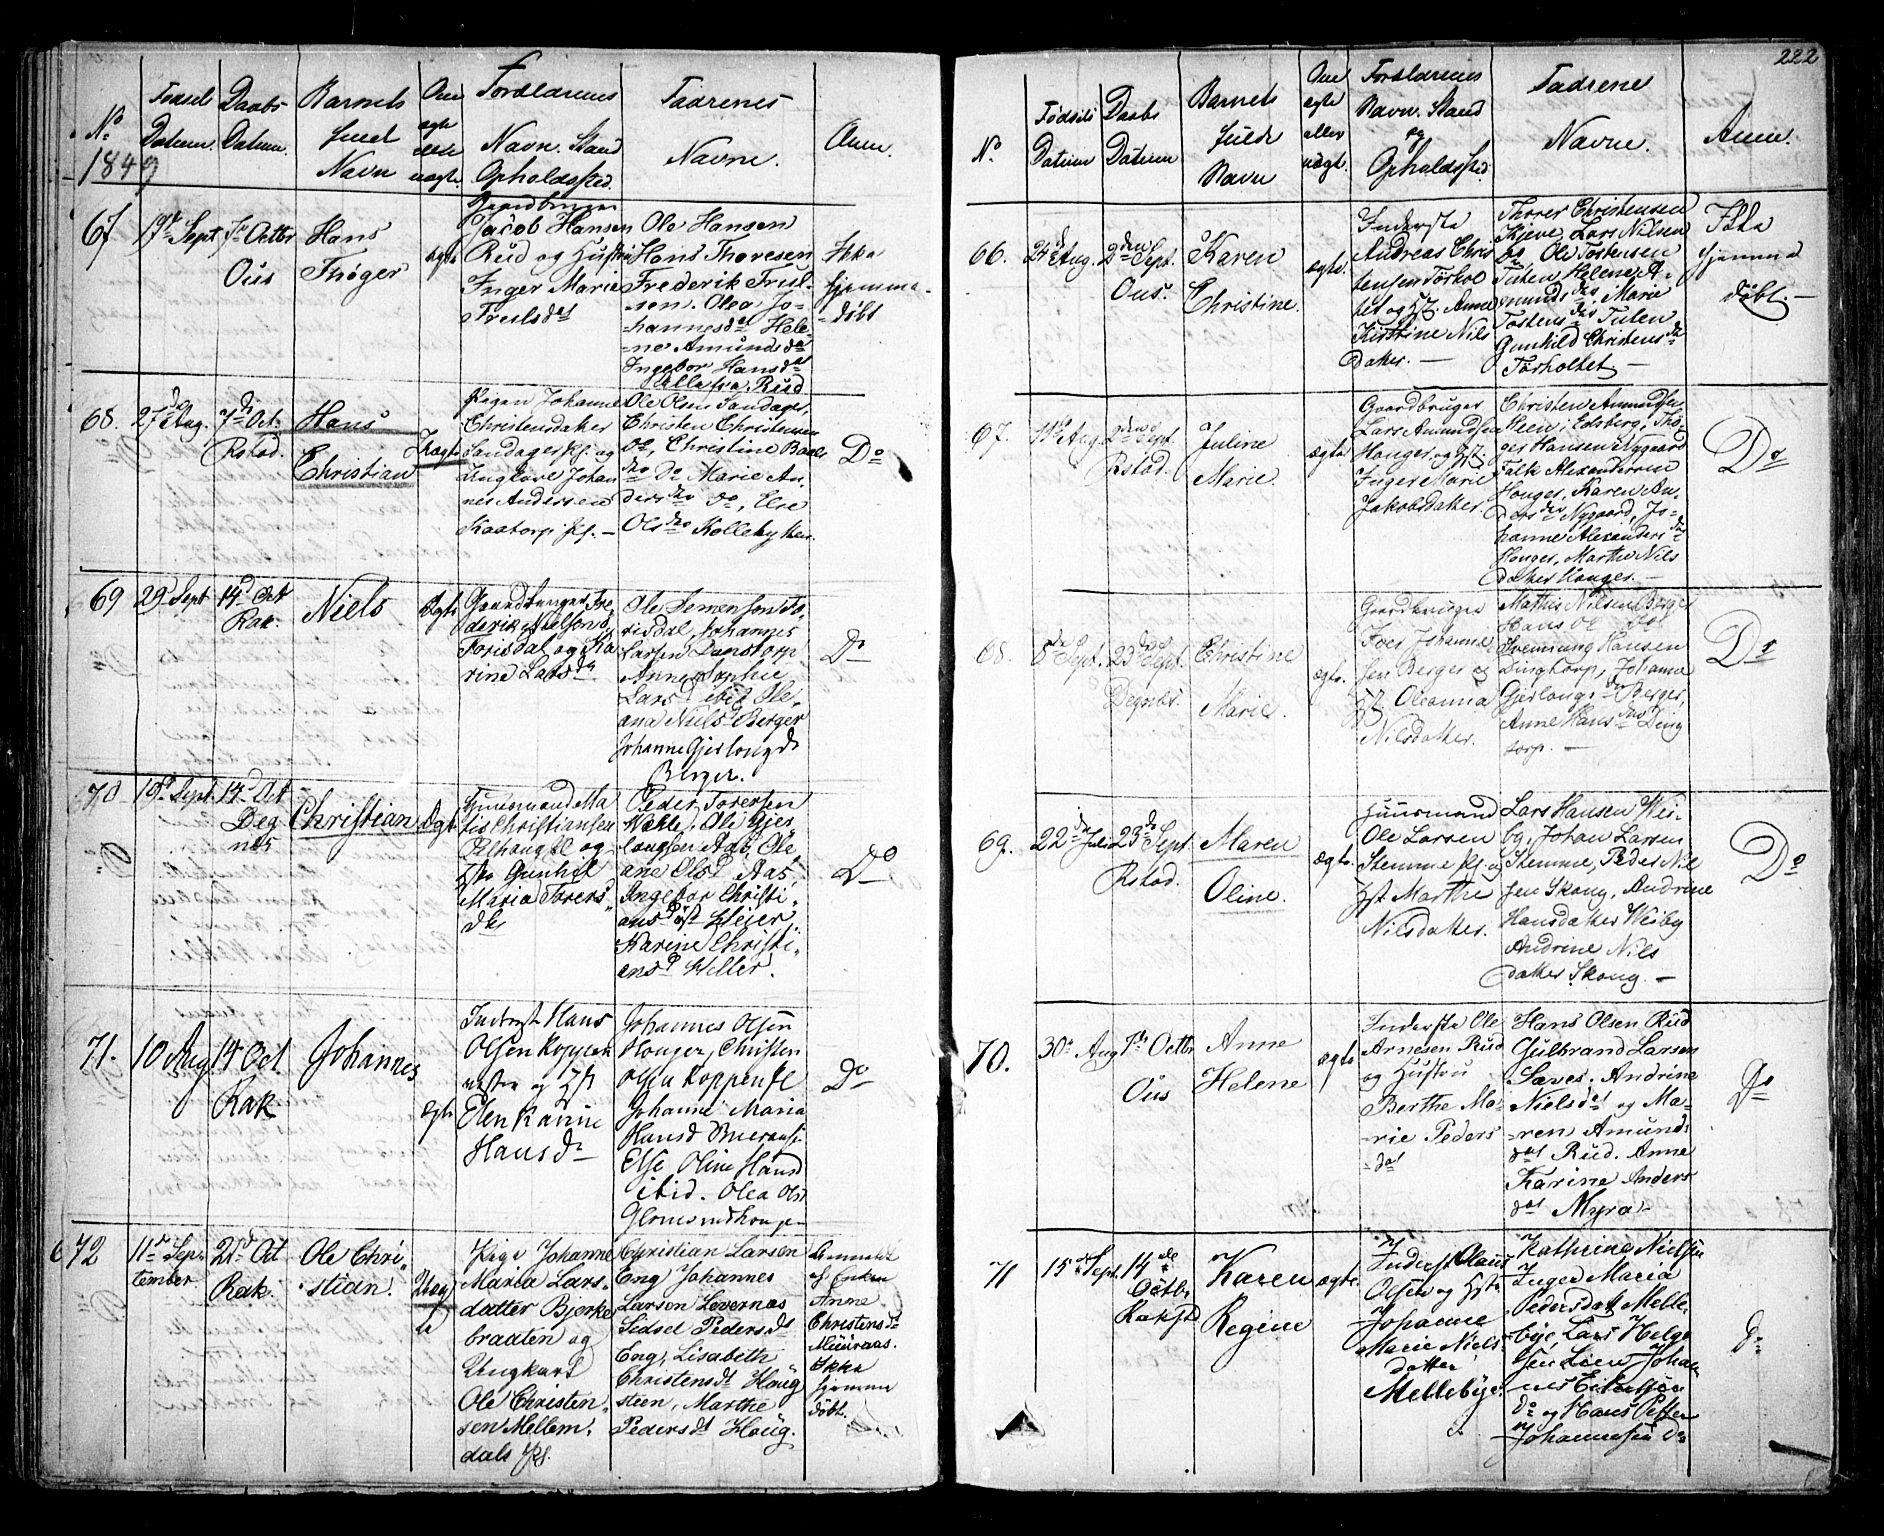 No
1849
Fødsels
Datum.
Daabs
Datum.
Barnets
fuld
Navn
Om
ægte
eller
uægte.
Forældrenes
Navn. Stand
Opholdssted.
Fadrenes
Navne.
Anm.
67
19d Sept
7de Octbr
Ous
Hans
Thøger
ægte
Gaardbruger
Jacob Hansen
Rud og Hustru
Inger Marie
Truls dat
Ole Hansen
Hans Thoresen
Frederik Truls-
sen. Olea Jo-
hannesda Hele-
ne Amunds dat
Ingebor Hansda
Alle fra Rud
Ikke
hjemme-
døbt
68.
27de Aug.
7de Oct.
Rstad.
Hans
Christian
Uægte
Pigen Johanne
Christensdatter
Sandager pl. og
Ungkarl Johan
nes Andersen
Kaatorp pl. —
Ole Olsen Sandager,
Christen Christensen
do, Christine Baals
dto do Marie An-
ders dto do, Else
Ols dto Kolleby
Do
69
29 Sept
14d Oct
Rak.
Niels
Ægte
Gaardbruger Fre-
derik Nielsen
Torisdal og Ka
rine Larsda
Ole Semensen To-
risdal, Johannes
Larsen Danstorp
Anne Sophie
Larsd ibid. He-
ana Niels D Berger
Johanne Gjerlougd
Berger.
Do
70
19d Sept.
14d Oct
Deg
nes
Christian
Ægte
Huusmand Ma
tis Christiansen
og
Hst Gunhil
Maria Torers-
dtr
Peder Toresen
Ole Gjer
lougsen Aas, Ole
ane Olsd Aas,
Ingebor Christi-
ansd
Karine Christi-
ansd
Do
71.
10 Aug
14 Oct
Rak
Johannes
Ægte
Inderst Hans
Olsen Koppen
og Hst
Elen Karine
Hansda
Johannes Olsen
Houger, Christen
Olsen
Johanne Maria
Hansd
Else Oline Hansd
ibid. Olea Olsd
72
11d Sep-
tember
21d Oct
Rak.
Ole Chri-
stian.
Uæg-
te
Pige Johanne
Maria Lars-
datter Bjerke
braaten og
Ungkarl
Ole Christen-
sen Mellem-
dals pl.
Christian Larsen
Eng, Johannes
Larsen Levernæs
Sidsel Pedersdt
Eng, Lisabeth
Christensdt Houg
steen, Marthe
Pedersdt Houg.
Anmeldt
af Enken
Anne
Christensdt
Ikke
hjemme
døbt.
222
No.
Fødsels
Datum
Daabs
Datum
Barnets
fulde
Navn
Om
ægte
eller
uægte.
Forældrenes
Navn. Stand
og
Opholdssted.
Fadrene
Navne.
Anm.
66.
24d Aug.
2den Sept.
Ous.
Karen
Christine.
ægte.
Inderste
Andreas Chris
tensen Torhol
tet og H. Anne
Kirstine Nils
datter. —
Thorer Christensen
Kjeve, Lars Nilsen
do, Ole Tostensen
Tuten Helene A-
munds dto, Marie
Tostens dto Tuten
Gunhild Christens da
Torholtet —
Ikke
hjemme
døbt. —
67.
11te Aug
2den Sept.
Rstad.
Juline
Marie.
ægte
Gaardbruger
Lars Amundsen
Houger, og Hst.
Inger Marie
Jakobsdatter.
Christen Amundsen
Steen i Edsberg, Thø-
ger Hansen Nygaard
Falk Alexandersen
Houger, Karen An-
ders dto Nygaard, Jo-
hanne Alexanders da
Houger, Marthe Nils
datter Houger. —
Do
68.
8de Sept.
23de Sept.
Degnes.
Christine
Marie.
ægte.
Gaardbruger
Iver Johanne
sen Berger og
Hst Oleanna
Nilsdatter.
Mathis Nilsen Berger
Hans Ol
Svennung Hansen
Dingtorp, Johanna
Gjerloug da Berger,
Anne Hans dto Ding
torp. —
Do
69.
22de Juli
23de Sept.
Rstad.
Maren
Oline.
ægte.
Huusmand
Ole Larsen
Stemme pl. og
Hst Marthe
Nilsdatter.
Lars Hansen Wei-
by, Johan Larsen
Stemme, Peder Nil
sen Skoug, Andrine
Hansdatter Weiby
Andrine Nils
datter Skoug. —
Do
70.
30d Aug
7de Octbr
Ous
Anne
Helene
ægte
Inderste Ole
Arnesen Rud
og Hustru
Berthe Ma-
rie Peders
dat
Hans Olsen Rud
Gulbrand Larsen
Sæves. Andrine
Nielsdat og Ma-
ren Amunds
dat Rud. Anne
Karine Anders
dat Myra
Do
71
15d Sept.
14de
Octbr.
Rakstd
Karen
Regine
ægte.
Inderst Olaus
Olsen og Hst.
Johanne
Marie Niels-
datter
Mellebye
Kathrine Nielsen
Inger Maria
Pedersdat Melle
bye, Lars Helge
sen Lien, Johan
nes
do og Hans Petter
Johannesen Do
Do